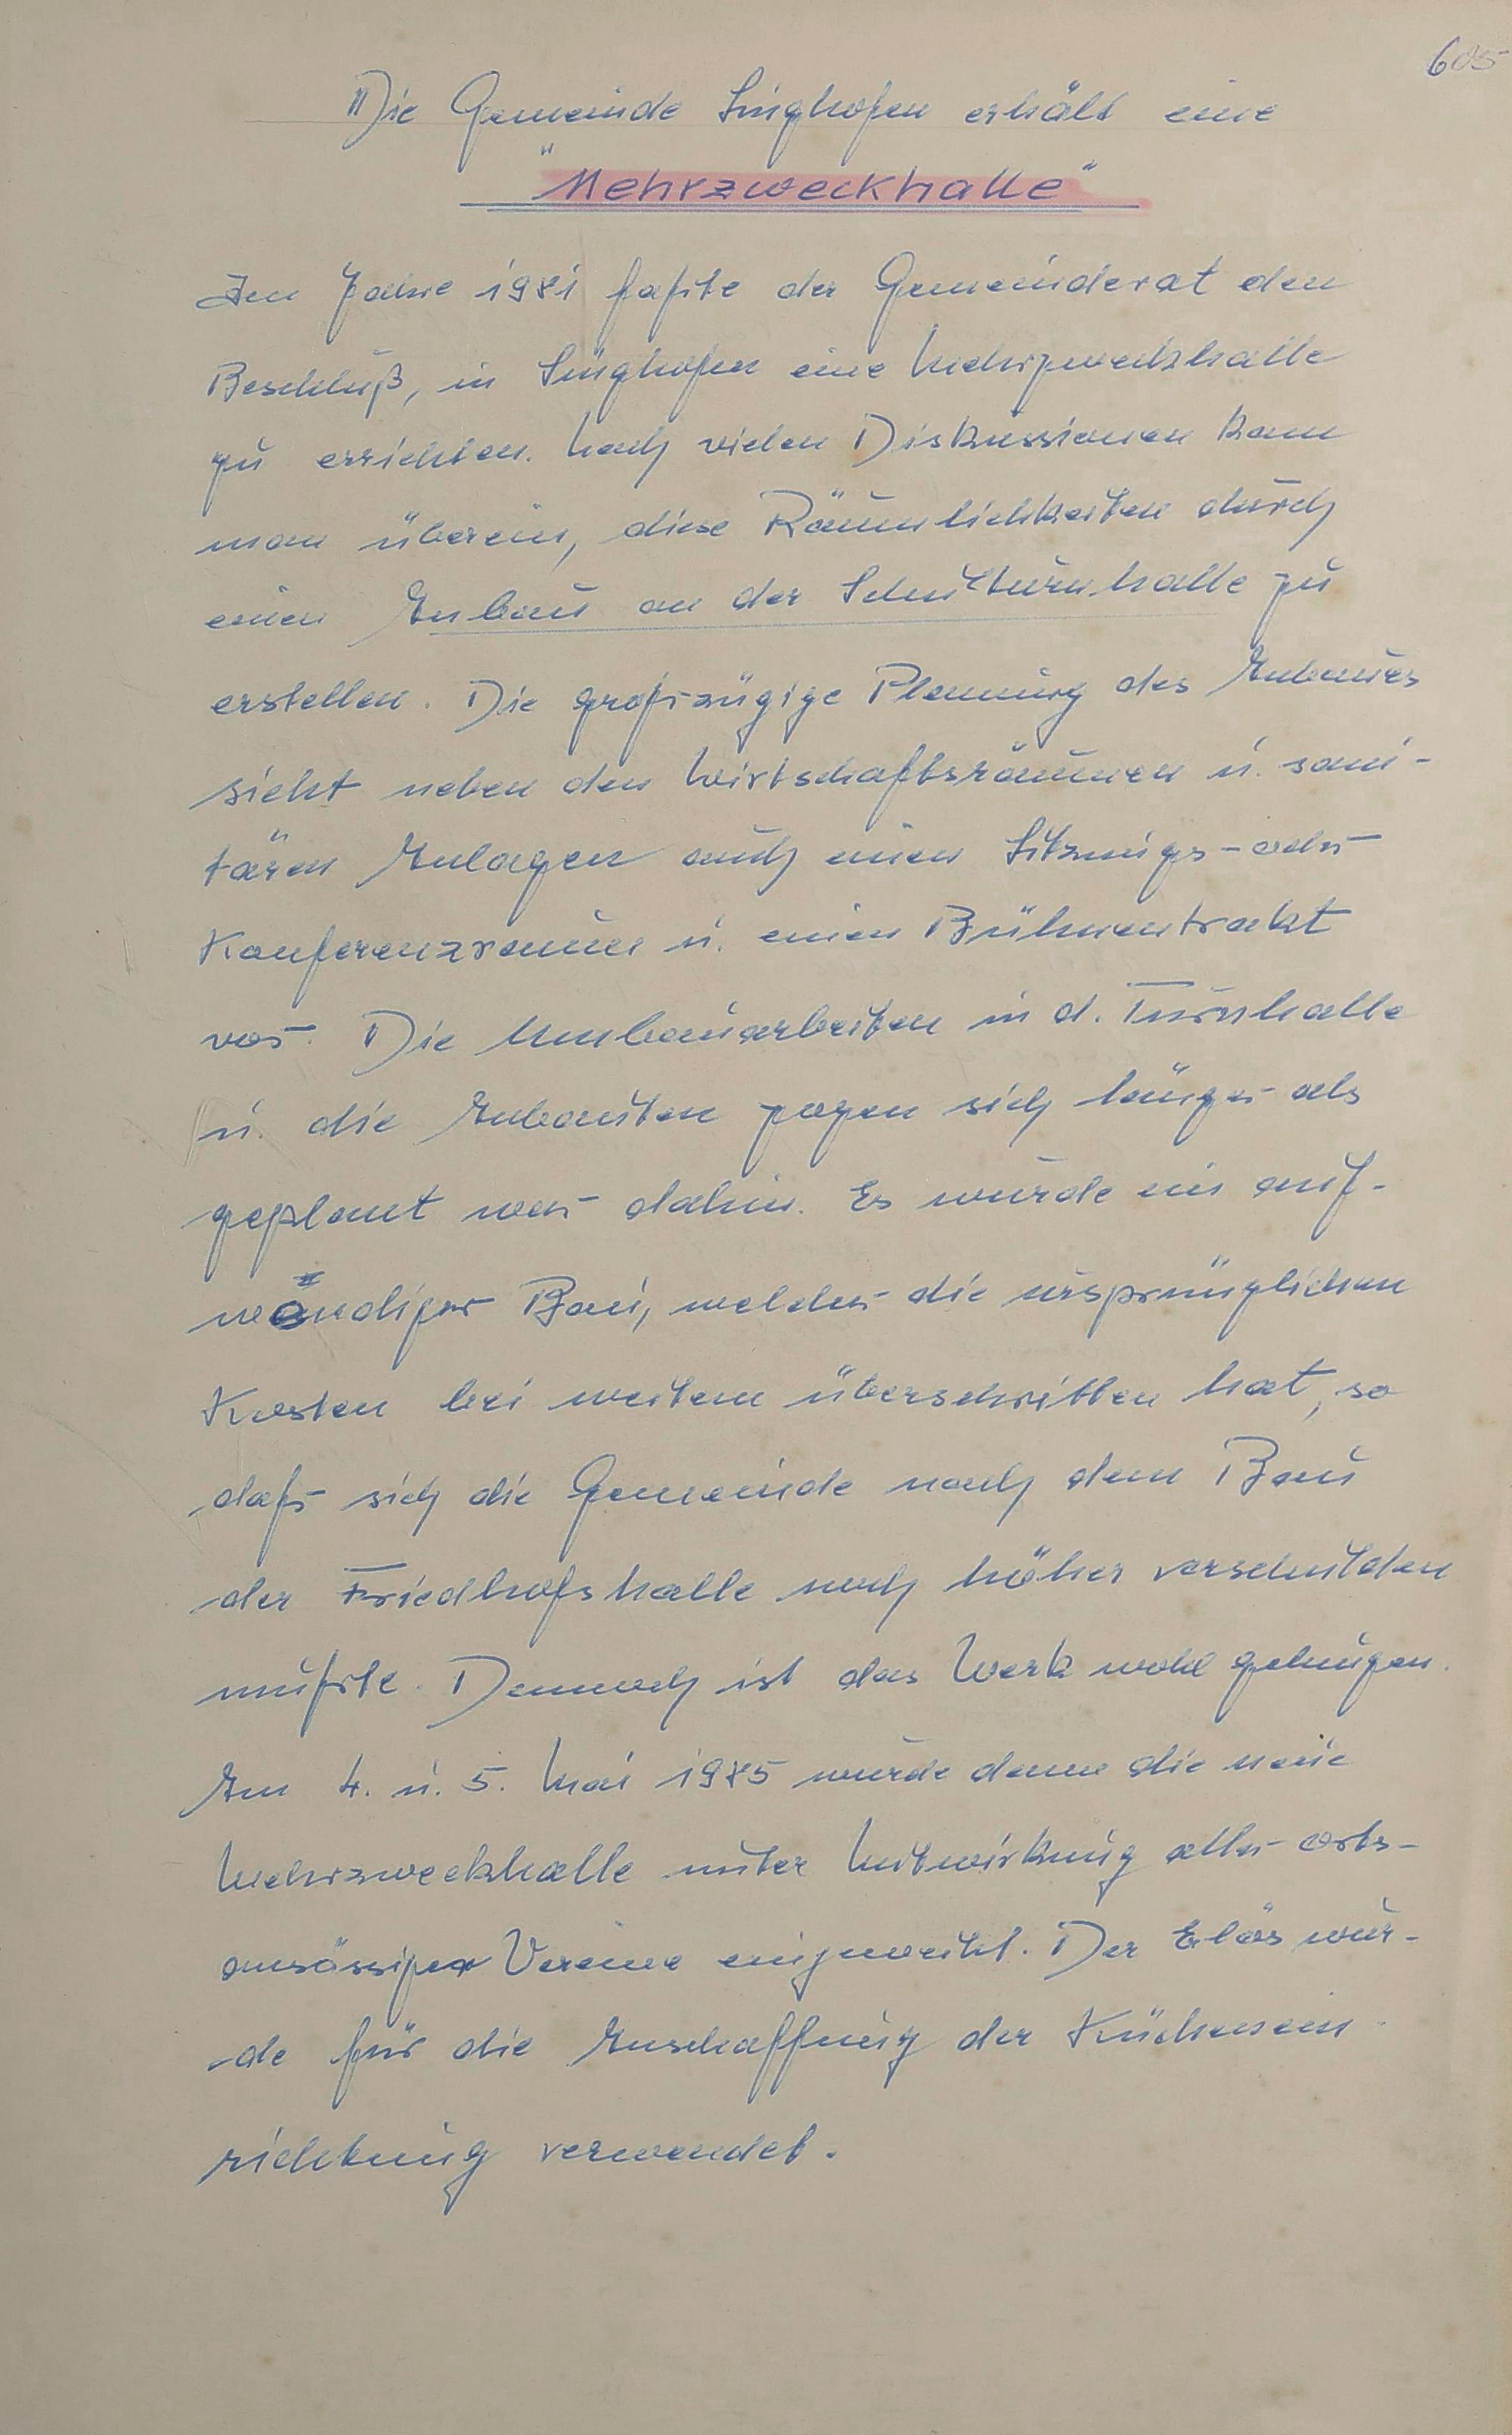 605
Die Gemeinde Singhofen erhält eine
"Mehrzweckhalle"
Im Jahre 1981 faßte der Gemeinderat den
Beschluß, in Singhofen eine Mehrzweckhalle
zu errichten. Nach vielen Diskussionen kam
man überein, diese Räumlichkeiten durch
einen Anbau an der Schulturnhalle zu
erstellen. Die großzügige Planung des Anbaues
sieht neben den Wirtschaftsräumen u. sani-
tären Anlagen auch einen Sitzungs-oder
Konferenzraum u. einen Bühnentrakt
vor. Die Umbauarbeiten in d. Turnhalle
u. die Anbauten zogen sich länger als
geplant war dahin. Es wurde ein auf-
wändiger Bau, welcher die ursprünglichen
Kosten bei weitem überschritten hat, so
daß sich die Gemeinde nach dem Bau
der Friedhofshalle noch höher verschulden
mußte. Dennoch ist das Werk wohl gelungen.
Am 4. u. 5. Mai 1985 wurde dann die neue
Mehrzweckhalle unter Mitwirkung aller orts-
ansässiger Vereine eingeweiht. Der Erlös wur-
de für die Anschaffung der Küchenein-
richtung verwendet.